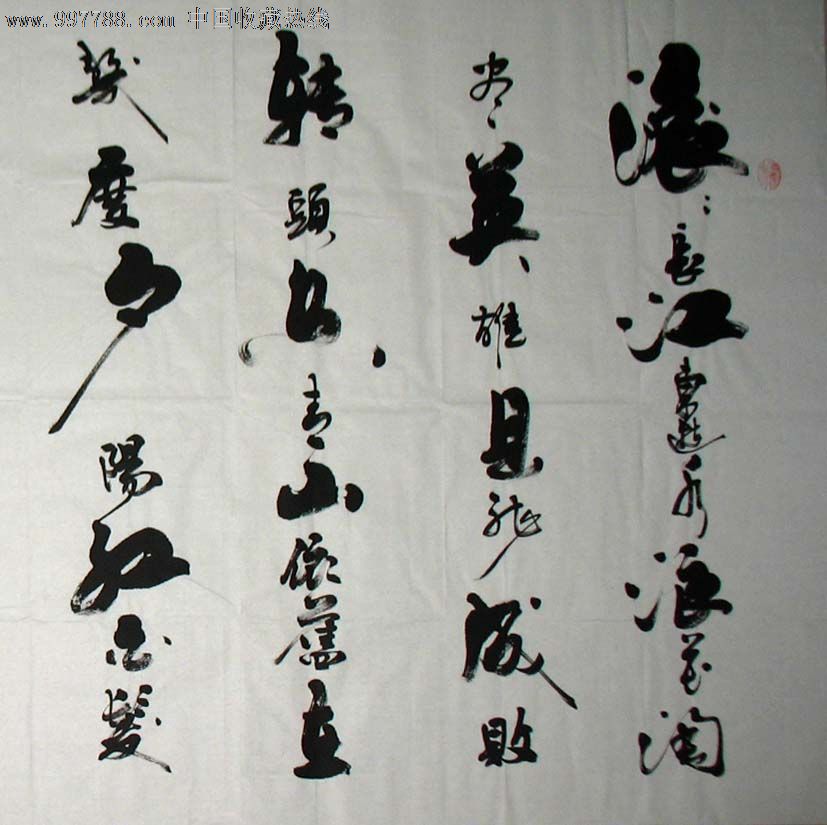 www.997788.com 中国收藏热线
滚〻長江東逝水浪花淘
尽英雄是非成敗
转頭空青山依舊在
幾度夕陽红白髮